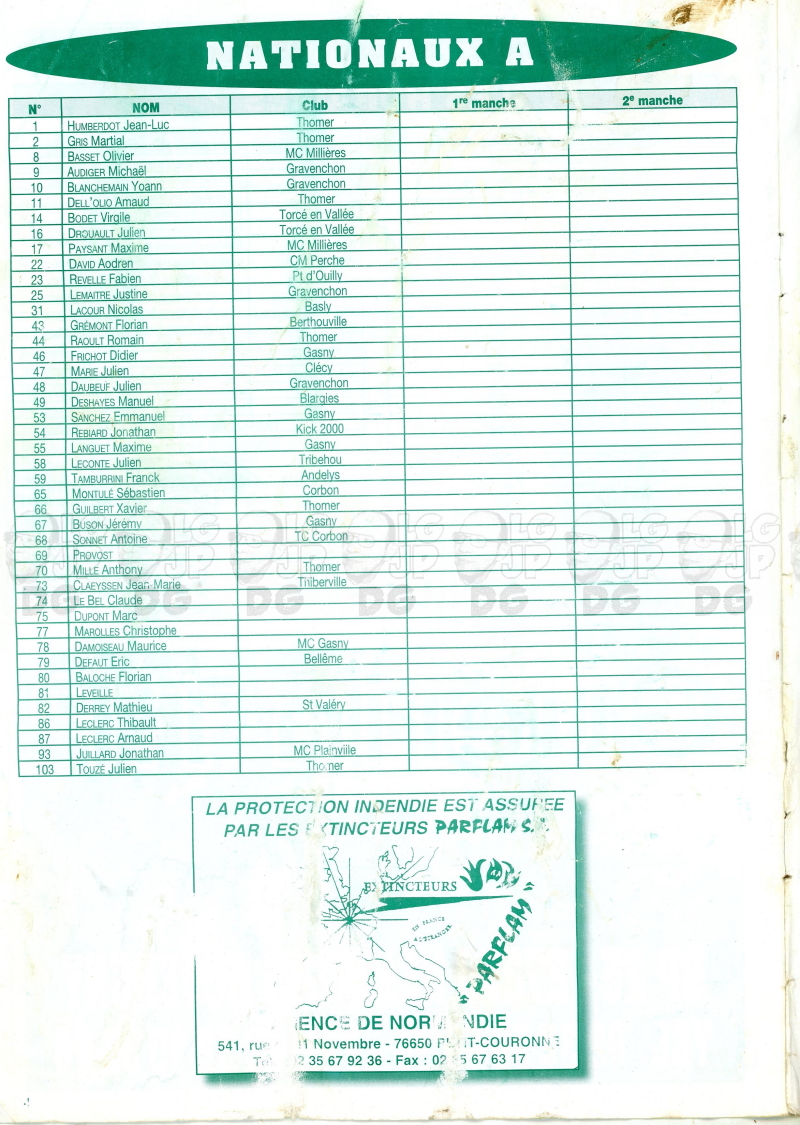 NATIONAUX A
N° NOM Club 1re manche 2e manche
1 HUMBERDOT Jean-Luc Thomer
2 GRIS Martial Thomer
8 BASSET Olivier MC Millières
9 AUDIGER Michaël Gravenchon
10 BLANCHEMAIN Yoann Gravenchon
11 DELL'OLIO Arnaud Thomer
14 BODET Virgile Torcé en Vallée
16 DROUAULT Julien Torcé en Vallée
17 PAYSANT Maxime MC Millières
22 DAVID Aodren CM Perche
23 REVELLE Fabien Pt d'Ouilly
25 LEMAITRE Justine Gravenchon
31 LACOUR Nicolas Basly
43 GRÉMONT Florian Berthouville
44 RAOULT Romain Thomer
46 FRICHOT Didier Gasny
47 MARIE Julien Clécy
48 DAUBEUF Julien Gravenchon
49 DESHAYES Manuel Blargies
53 SANCHEZ Emmanuel Gasny
54 REBIARD Jonathan Kick 2000
55 LANGUET Maxime Gasny
58 LECONTE Julien Tribehou
59 TAMBURRINI Franck Andelys
65 MONTULÉ Sébastien Corbon
66 GUILBERT Xavier Thomer
67 BUSON Jérémy Gasny
68 SONNET Antoine TC Corbon
69 PROVOST
70 MILLE Anthony Thomer
73 CLAEYSSEN Jean Marie Thiberville
74 LE BEL Claude
75 DUPONT Marc
77 MAROLLES Christophe
78 DAMOISEAU Maurice MC Gasny
79 DEFAUT Eric Bellême
80 BALOCHE Florian
81 LEVEILLE
82 DERREY Mathieu St Valéry
86 LECLERC Thibault
87 LECLERC Arnaud
93 JUILLARD Jonathan MC Plainville
103 TOUZÉ Julien Thomer
LA PROTECTION INDENDIE EST ASSUREE
PAR LES EXTINCTEURS PARFLAM
EXTINCTEURS
EN FRANCE
A L'ETRANGER
"PARFLAM"
DE NORMANDIE
541, rue 11 Novembre - 76650 PETIT-COURONNE
35 67 92 36 - Fax : 02 35 67 63 17
LG JP DG